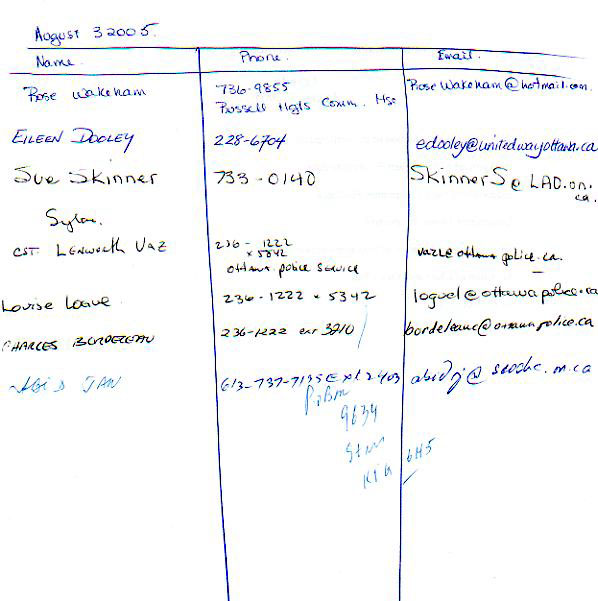 August 3 2005.
Name. Phone. Email.
Rose Wakeham 736-9855 RoseWakeham@hotmail.com.
Russell Hgts Comm. Hse
EILEEN DOOLEY 228-6704 edooley@unitedwayottawa.ca
Sue Skinner 733-0140 SkinnerS@LAO.on.
ca.
CST. LENWORTH VAZ 236-1222
x 5342 vazle ottawa police.ca.
Ottawa police Service
Louise Logue 236-1222 x 5342 loguel@ottawapolice.ca
CHARLES BORDELEAU 236-1222 ext 3210 bordeleauc@ottawapolice.ca
JAN 613-737-7135 Ext 2403
9634
6H5